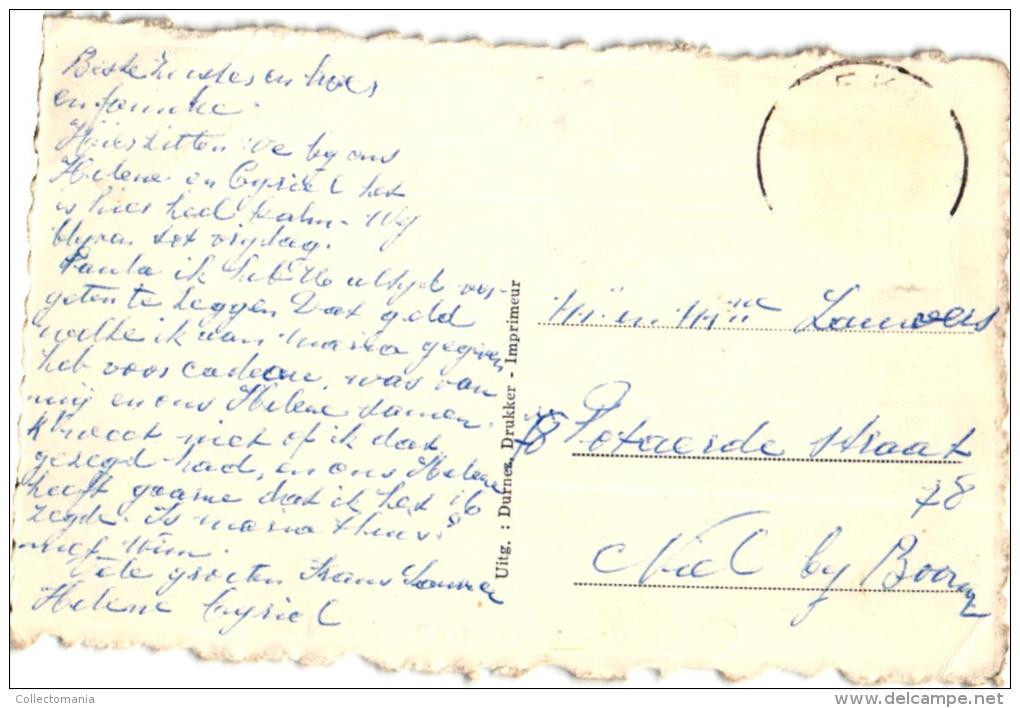 Beste Zuster en broer
en fonneke
Hier zitten we by ons
Helene en Cyriel het
is hier heel kalm. Wy
blyven tot vrydag.
Paula ik heb U altyd ver-
geten te zeggen Dat geld
welke ik aan Maria gegeven
heb voor cadeau, was van
my en ons Helene samen.
K weet niet of ik dat
gezegd had, en ons Helene
heeft gaarne dat ik het U
zegde. Is maria thuis?
met Wim.
Vele groeten Frans
Helene Cyriel
Uitg. : Durnez, Drukker - Imprimeur
Mr en Mme Lauwers
78 Potaerde straat
78
Niel by Boom
Collectomania
www.delcampe.net